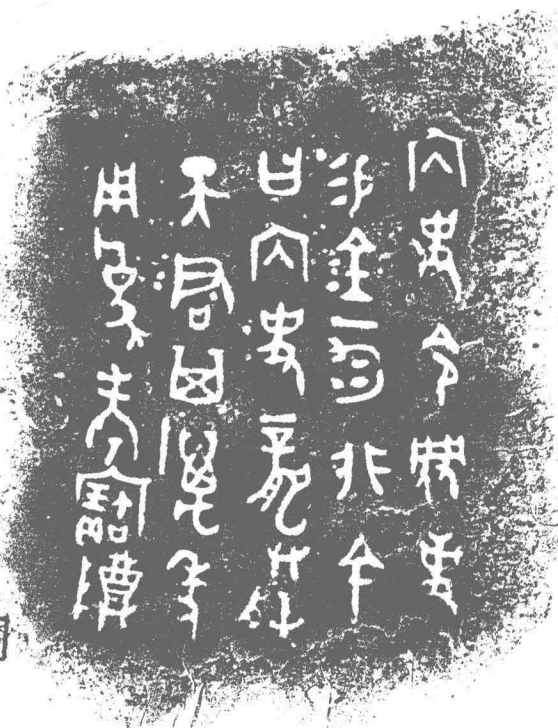 內史令事
易金一勻非余
曰內史龏朕
天君其萬年
用為考寶尊